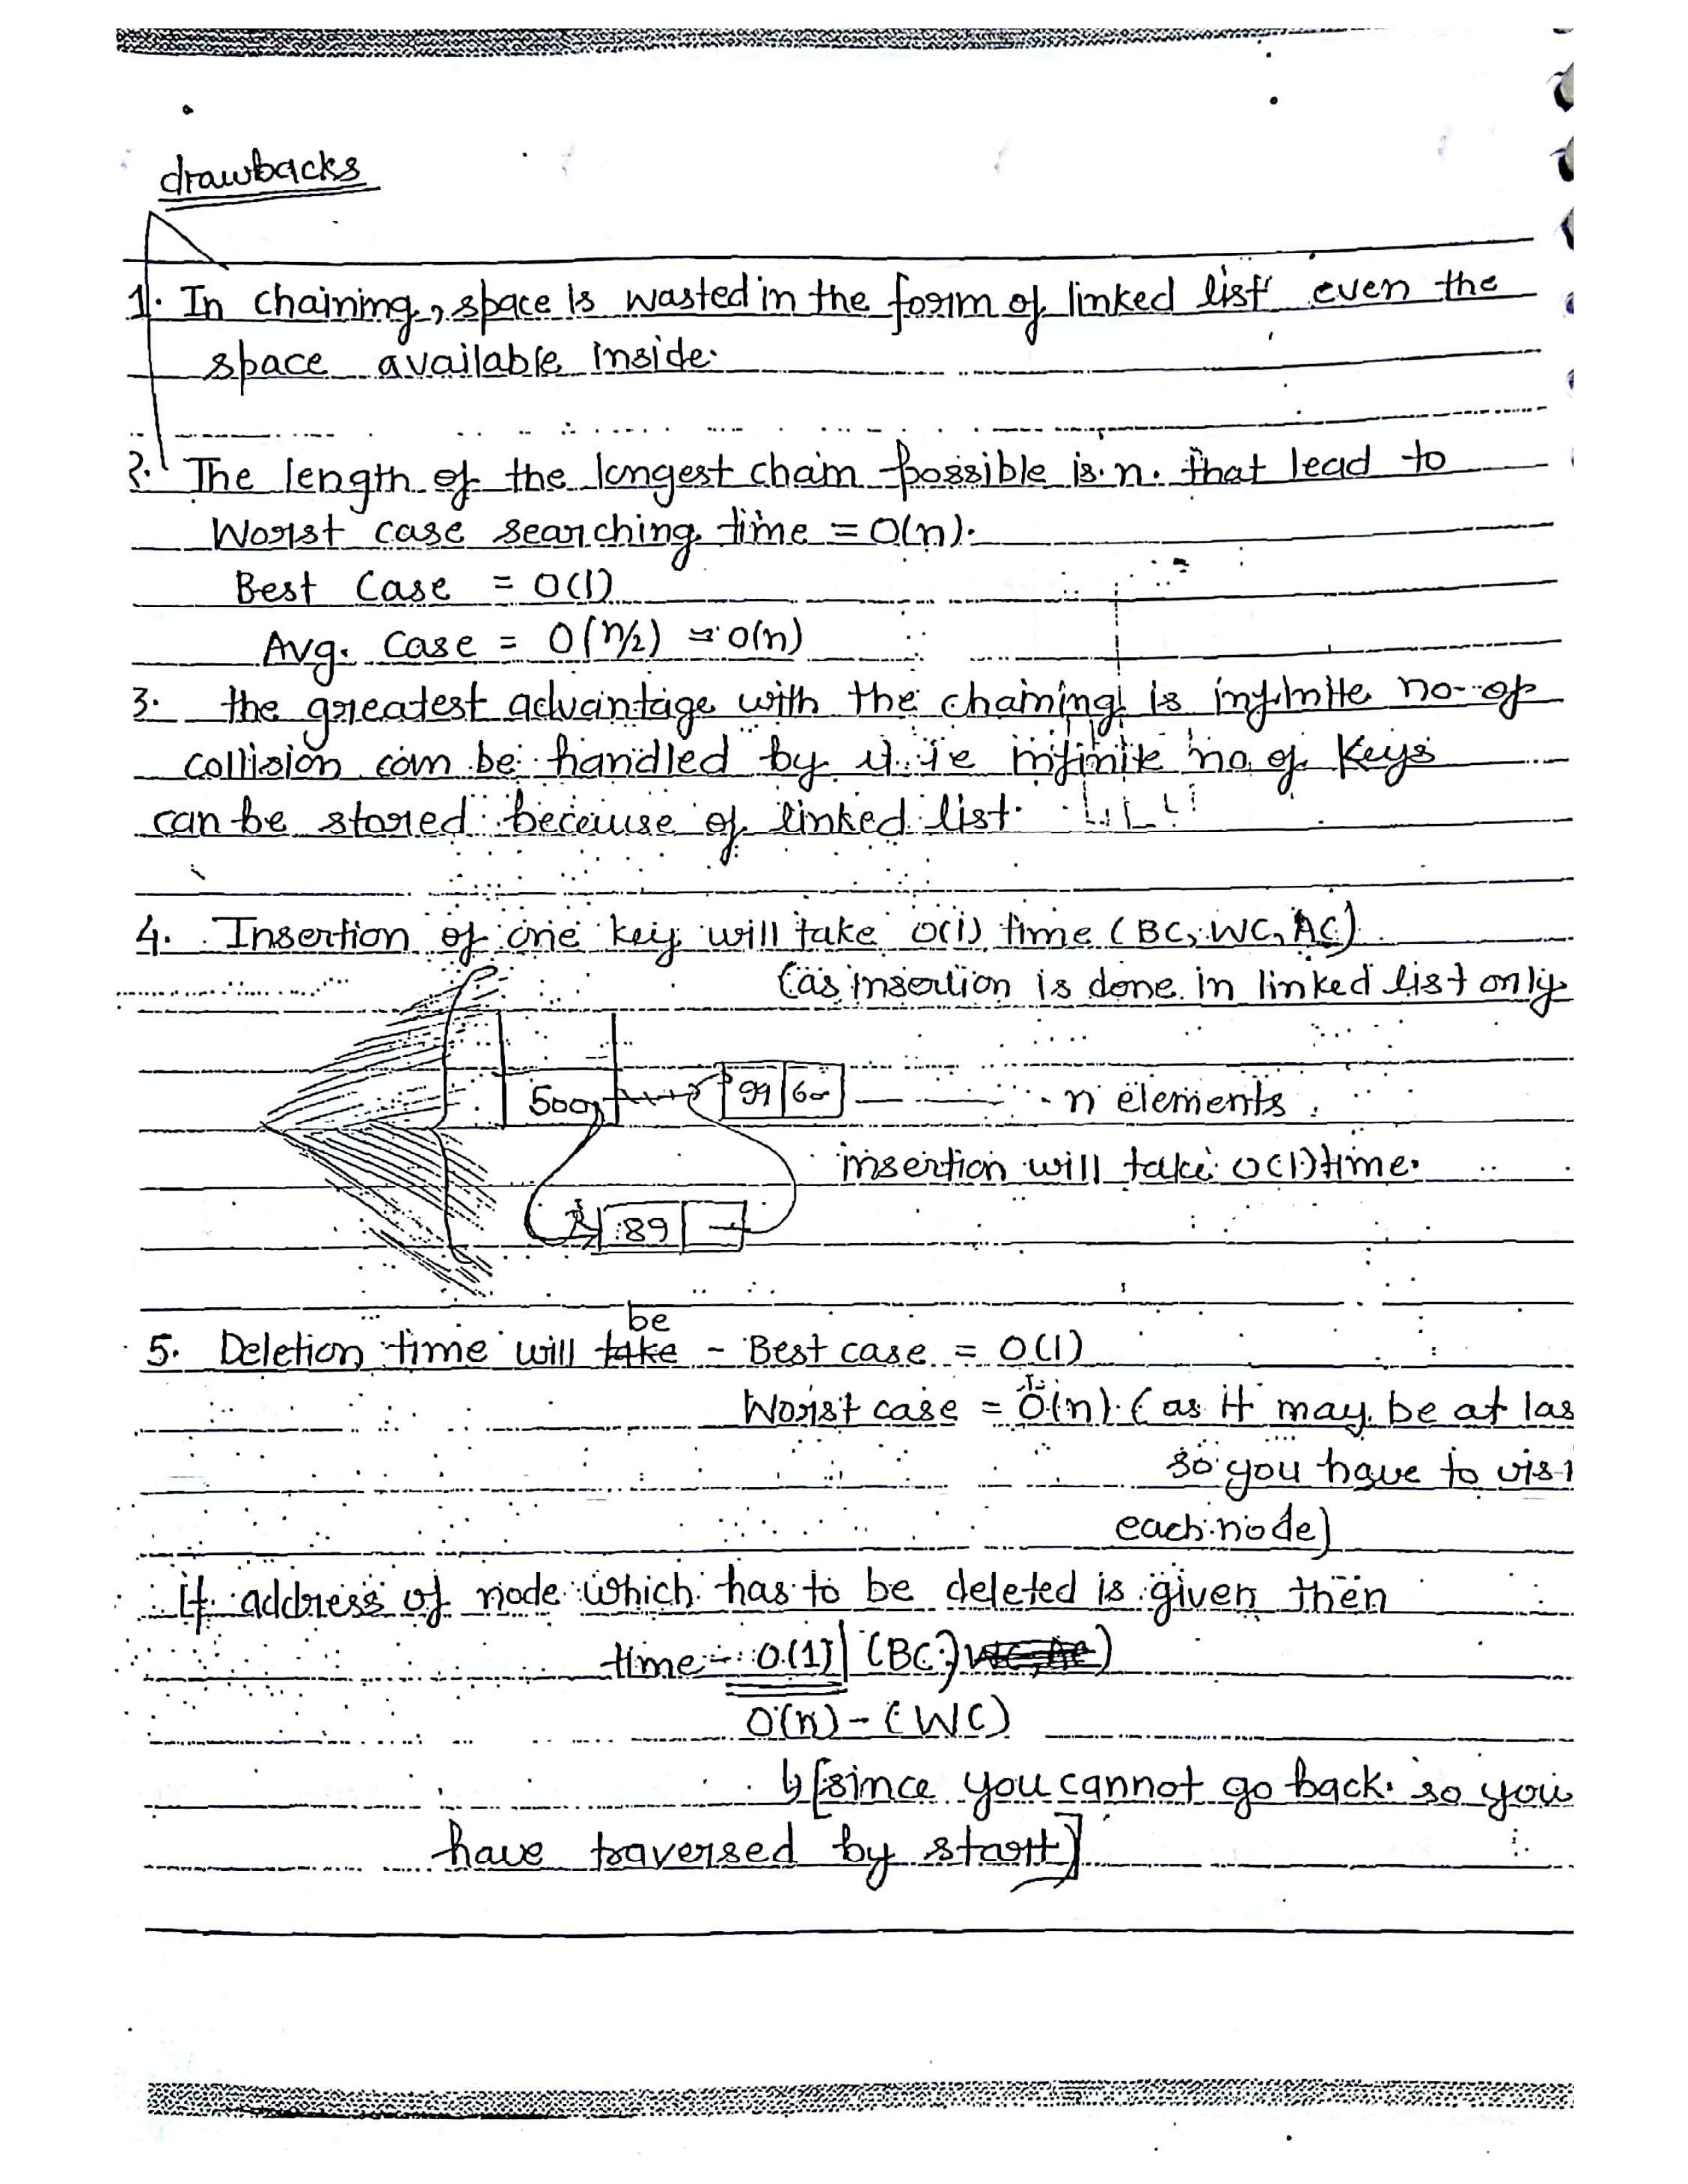 drawbacks
1. In chaining, space is wasted in the form of linked list even the
space available inside.
2. The length of the longest chain possible is n. that lead to
Worst case searching time = O(n).
Best Case = O(1)
Avg. Case = O(n/2) = O(n)
3. the greatest advantage with the chaining is infinite no. of
collision can be handled by it ie infinite no of keys
can be stored because of linked list.
4. Insertion of one key will take O(1) time (BC, WC, AC)
(as insertion is done in linked list only
500 99 600 n elements.
insertion will take O(1) time.
89
be
5. Deletion time will take - Best case = O(1)
Worst case = O(n). (as it may be at las
so you have to visi
each node)
If address of node which has to be deleted is given then
time - O(1) (BC)
O(n) - (WC)
↳ [since you cannot go back so you
have traversed by start]